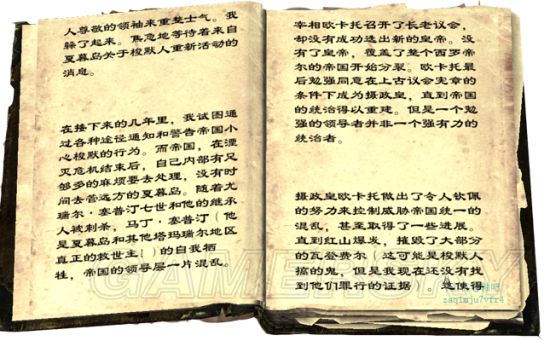 人尊敬的领袖来重整士气。我
躲了起来。焦急地等待着来自
夏暮岛关于梭默人重新活动的
消息。
在接下来的几年里，我试图通
过各种途径通知和警告帝国小
心梭默的行为。而帝国，在湮
灭危机结束后，自己内部有足
够多的麻烦要去处理，没有时
间去管远方的夏暮岛。随着尤
瑞尔·塞普汀七世和他的继承
人被刺杀，马丁·塞普汀（他
是夏暮岛和其他塔玛瑞尔地区
真正的救世主！）的自我牺
牲，帝国的领导层一片混乱。
宰相欧卡托召开了长老议会，
却没有成功选出新的皇帝。没
有了皇帝，覆盖了整个西罗帝
尔的帝国开始分裂。欧卡托最
后勉强同意在上古议会宪章的
条件下成为摄政皇，直到帝国
的统治得以重建。但是一个勉
强的领导者并非一个强有力的
统治者。
摄政皇欧卡托做出了令人钦佩
的努力来控制威胁帝国统一的
混乱，甚至取得了一些进展。
直到红山爆发，摧毁了大部分
的瓦登费尔（这可能是梭默人
搞的鬼，但是我现在还没有找
到他们罪行的证据）。是使得
GAMERSKY
zaqimju7vfr4